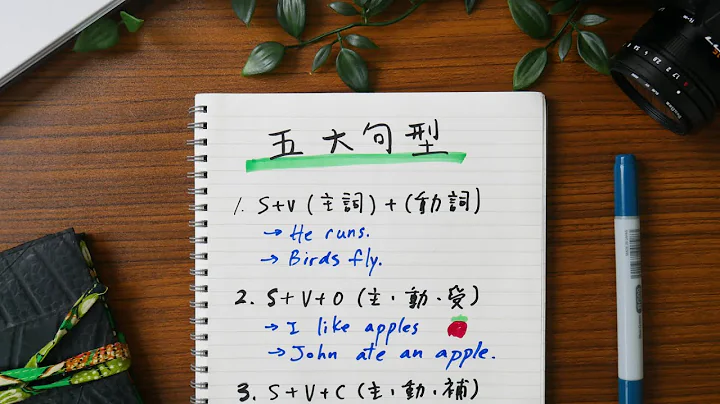 五大句型
1. S+V (主詞) + (動詞)
→ He runs.
→ Birds fly.
2. S+V+O (主、動、受)
→ I like apples
→ John ate an apple.
3. S+V+C (主、動、補)